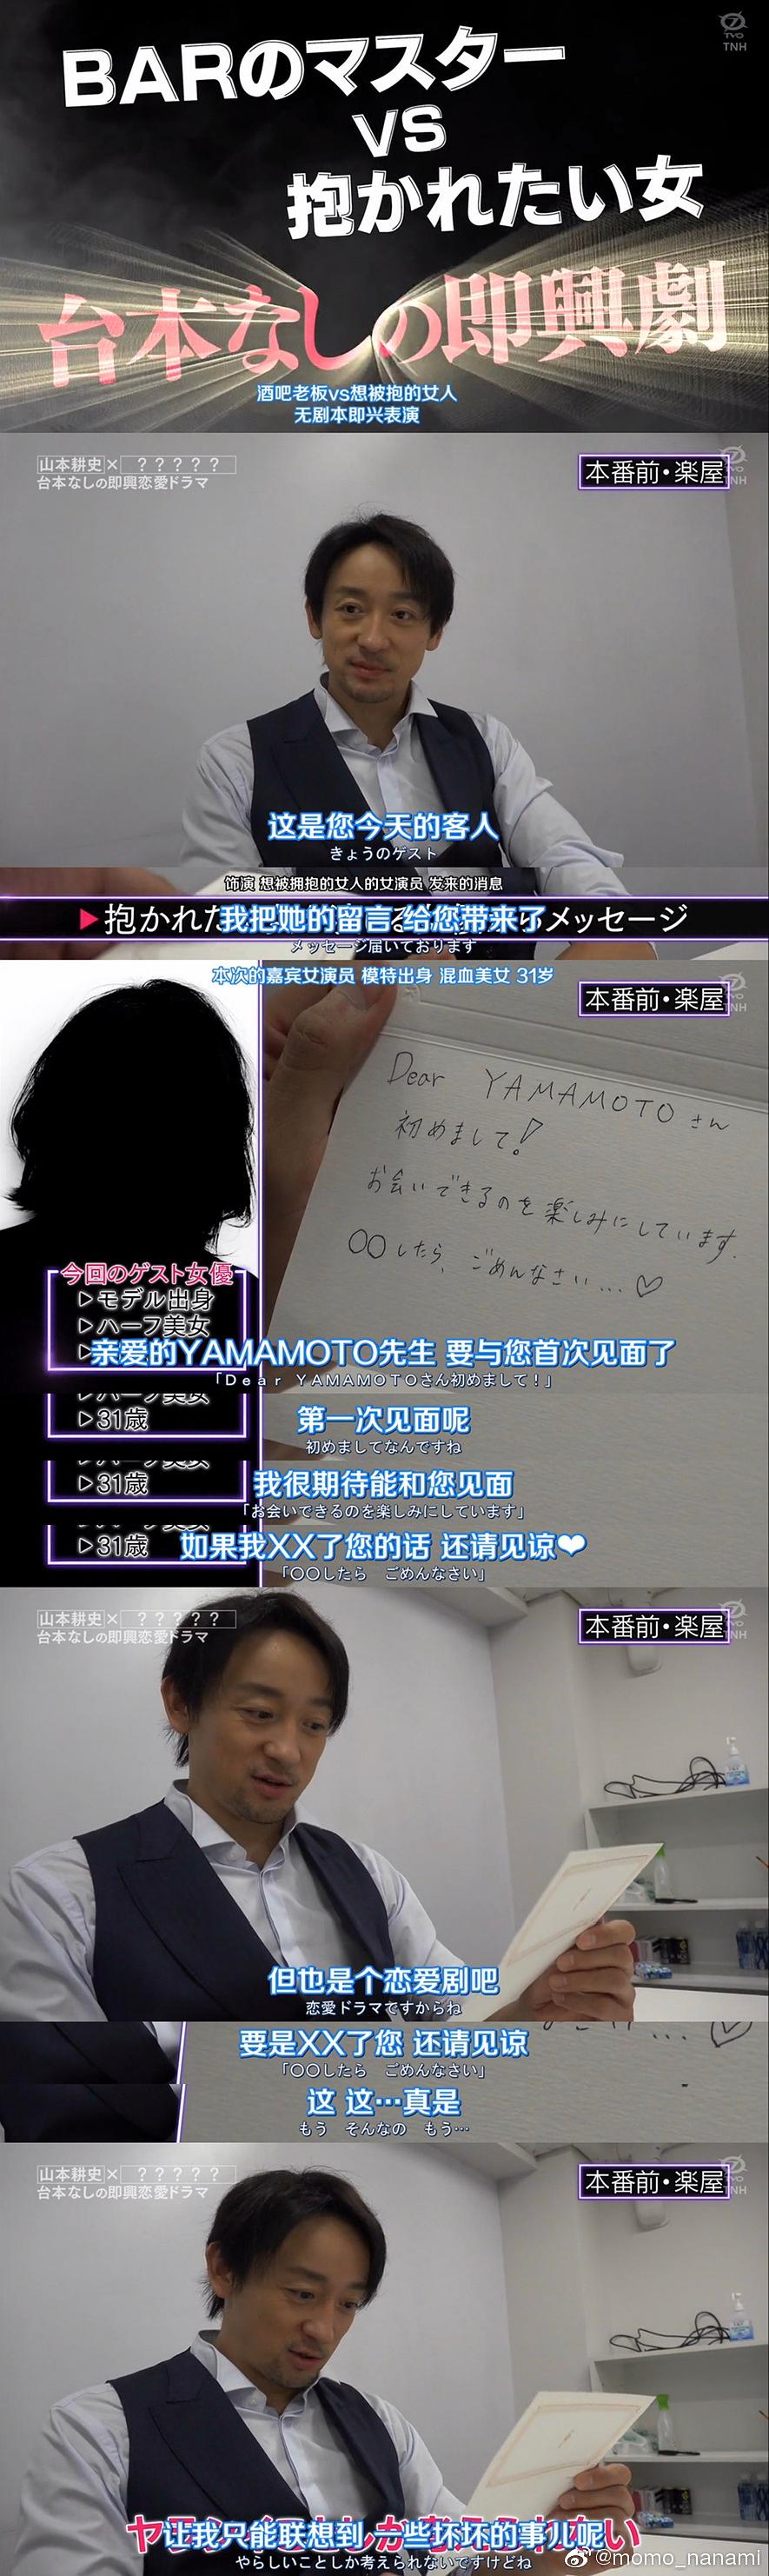 BARのマスター
VS
抱かれたい女
台本なしの即興劇
酒吧老板vs想被抱的女人
无剧本即兴表演
TVO
TNH
山本耕史×？？？？？
台本なしの即興恋愛ドラマ
本番前・楽屋
TVO
TNH
这是您今天的客人
きょうのゲスト
饰演 想被拥抱的女人的女演员 发来的消息
▶抱かれた
メッセージ
我把她的留言 给您带来了
メッセージ届いております
本次的嘉宾女演员 模特出身 混血美女 31岁
本番前・楽屋
TVO
TNH
Dear YAMAMOTOさん
初めまして!
お会いできるのを楽しみにしています.
〇〇したら、ごめんなさい…♡
今回のゲスト女優
▶モデル出身
▶ハーフ美女
亲爱的YAMAMOTO先生 要与您首次见面了
「Dear YAMAMOTOさん初めまして！」
▶ハーフ美女
▶31歳
第一次见面呢
初めましてなんですね
▶31歳
我很期待能和您见面
「お会いできるのを楽しみにしています」
▶31歳
如果我XX了您的话 还请见谅❤
「〇〇したら ごめんなさい」
山本耕史×？？？？？
台本なしの即興恋愛ドラマ
本番前・楽屋
TVO
TNH
但也是个恋爱剧吧
恋愛ドラマですからね
要是XX了您 还请见谅
「〇〇したら ごめんなさい」
这 这…真是
もう そんなの もう…
山本耕史×？？？？？
台本なしの即興恋愛ドラマ
本番前・楽屋
TVO
TNH
让我只能联想到 一些坏坏的事儿呢
やらしいことしか考えられないですけどね
@momo_nanami